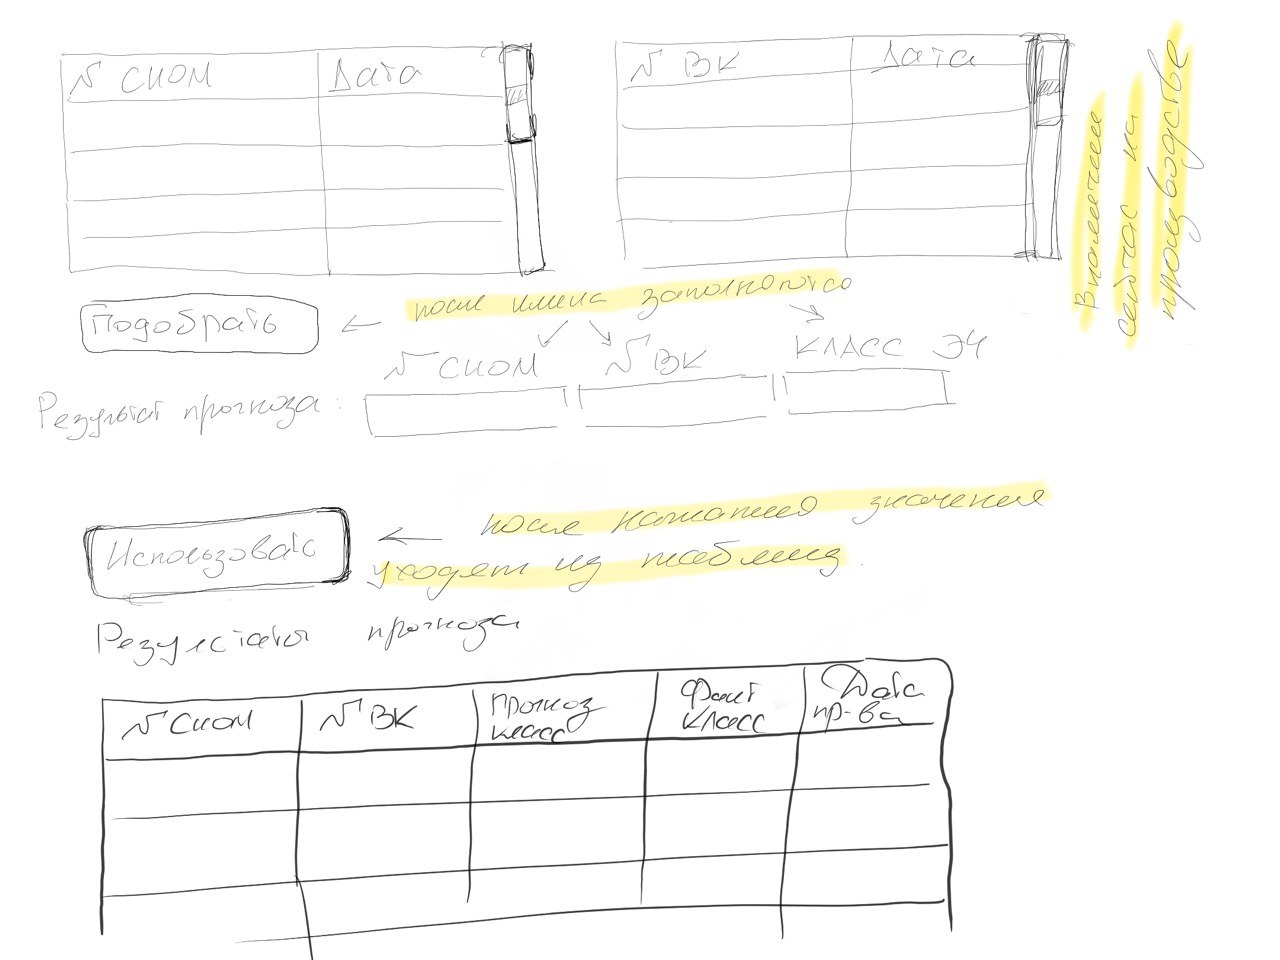 № СИОМ
Дата
№ ВК
Дата
сейчас на
производстве
Подобрать
после заполняются
№ СИОМ
№ ВК
КЛАСС ЭЧ
Результат прогноза:
Использовать
после нажатия значения
уходят из таблиц
Результаты прогноза
№ СИОМ
№ ВК
Прогноз
класс
Факт
класс
Дата
пр-ва